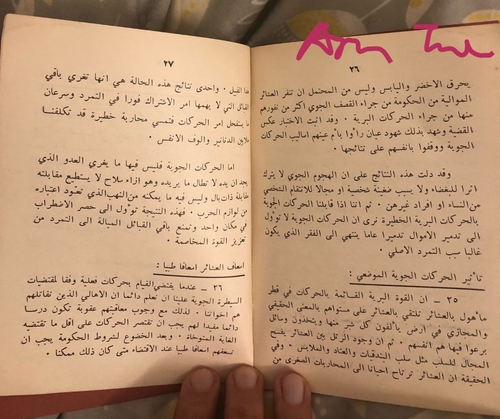 ٢٦
يحرق الاخضر واليابس وليس من المحتمل ان تنفر العشائر
الموالية من الحكومة من جراء القصف الجوي اكثر من نفورهم
منها من جراء الحركات البرية . وقد اثبت الاختبار عكس
القضية وشهد بذلك شهود عيان رأوا بأم عينهم اساليب الحركات
الجوية ووقفوا بانفسهم على نتائجها .
وقد دلت هذه النتائج على ان الهجوم الجوي لا يترك
اثرا للبغضاء ولا يسبب ضغينة شخصية او مجالا للانتقام الشخصي
من النساء او افراد غيرهن . ثم اننا اذا قابلنا الحركات الجوية
بالحركات البرية الخطيرة نرى ان الحركات الجوية لا تؤول
الى تدمير الاموال تدميرا عاما ينتهي الى الفقر الذي يكون
غالبا سبب التمرد الاصلي .
تأثير الحركات الجوية الموضعي :
٣٥ – ان القوة البرية القائمة بالحركات في قطر
مأهول بالعشائر تلتقي بالعشائر على ستواهم بالمعنى الحقيقي
والمجازي في ارض يألفون كل شبر منها ويتخذون وسائل
برعوا فيها هم انفسهم . ثم ان وجود الرتل بين العشائر يفسح
المجال للسلب مثل سلب البندقيات والعتاد والملابس . وفي
الحقيقة ان العشائر ترتاح احيانا الى المحاربات الصغرى من
٢٧
هذا القبيل . واحدى نتائج هذه الحالة هي انها تغري باقي
القبائل التي لا يهمها امر الاشتراك فورا في التمرد وسرعان
ما يستفحل امر الحركات فتمسي محاربة خطيرة قد تكلفنا
ملايين الدنانير والوف الانفس .
اما الحركات الجوية فليس فيها ما يغري العدو الذي
يجد ان يده لا تطال ما يريده وهو ازاء سلاح لا يستطيع مقابلته
مقابلة ذات بال وليس فيه ما يمكنه من النهب الذي تعود اعتباره
من لوازم الحرب . فهذه النتيجة تؤول الى حصر الاضطراب
في مكان واحد وتمنع باقي القبائل الميالة الى التمرد من
تعزيز القوة المخاصمة .
اسعاف العشائر اسعافا طبيا :
٣٦ – عندما يقتضي القيام بحركات فعلية وفقا لمقتضيات
السيطرة الجوية علينا ان نعلم دائما ان الاهالي الذين نقاتلهم
هم اخواننا . لذلك مع وجوب معاقبتهم عقوبة تكون درسا
دائما مفيدا لهم يجب ان تقتصر الحركات على اقل ما تقتضيه
الغاية المتوخاة . وبعد الخضوع لشروط الحكومة يجب ان
نسعفهم اسعافا طبيا عند الاقتضاء متى كان ذلك ممكنا .